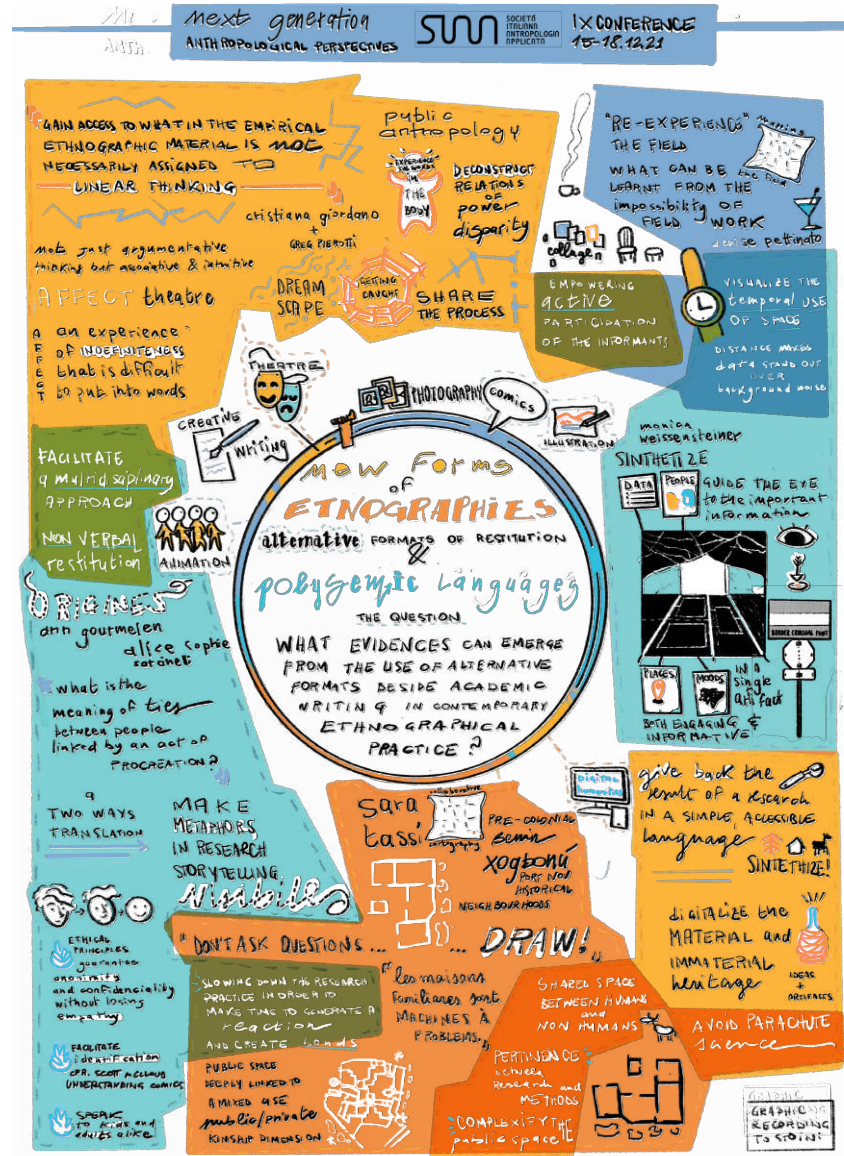 next generation
ANTHROPOLOGICAL PERSPECTIVES
SOCIETÀ
ITALIANA
ANTROPOLOGIA
APPLICATA
IX CONFERENCE
15-18.12.21
GAIN ACCESS TO WHAT IN THE EMPIRICAL
ETHNOGRAPHIC MATERIAL IS not
NECESSARILY ASSIGNED TO
LINEAR THINKING
cristiana giordano
+
GREG PIEROTTI
not just argumentative
thinking but associative & intuitive
AFFECT theatre
AFFECT
an experience
of INDEFINITENESS
that is difficult
to put into words
public
anthropology
EXPERIENCE
THE WORDS
IN
THE
BODY
DECONSTRUCT
RELATIONS
OF
power
disparity
DREAM
SCAPE
GETTING
CAUGHT
SHARE
THE PROCESS
"RE-EXPERIENCE"
THE FIELD
sharing
the field
WHAT CAN BE
LEARNT FROM THE
impossibility OF
FIELD WORK
denise pettinato
collage
EMPOWERING
active
PARTICIPATION
OF THE INFORMANTS
VISUALIZE THE
temporal USE
OF SPACE
DISTANCE MAKES
data STAND OUT
OVER
background noise
THEATRE
PHOTOGRAPHY
COMICS
ILLUSTRATION
CREATIVE
writing
ANIMATION
FACILITATE
a multidisaplinary
APPROACH
NON VERBAL
restitution
new Forms
of
ETNOGRAPHIES
alternative FORMATS OF RESTITUTION
&
polysemic Languages
THE QUESTION
WHAT EVIDENCES CAN EMERGE
FROM THE USE OF ALTERNATIVE
FORMATS BESIDE ACADEMIC
WRITING IN CONTEMPORARY
ETHNOGRAPHICAL
PRACTICE?
monica
weissensteiner
SINTHETIZE
DATA
PEOPLE
GUIDE THE EYE
to the important
information
BORDER CROSSING POINT
PLACES
MOODS
IN A
single
artifact
BOTH ENGAGING &
INFORMATIVE!
ORIGINES
ann gourmelen
alice sophie
sarcinelli
what is the
meaning of ties
between people
linked by an act of
PROCREATION?
a
TWO WAYS
TRANSLATION
MAKE
METAPHORS
IN RESEARCH
STORYTELLING
visibiles
ETHICAL
PRINCIPLES
guarantee
anonimity
and confidenciality
without losing
empathy
FACILITATE
identification
CFR. SCOTT McCLOUD
UNDERSTANDING COMICS
SPEAK
to kids and
adults alike
sara
tassi
collaborative
cartography
PRE-COLONIAL
Benin
xogbonú
PORT NOVO
HISTORICAL
NEIGHBOURHOODS
"DON'T ASK QUESTIONS ...
... DRAW!
SLOWING DOWN THE RESEARCH
PRACTICE IN ORDER TO
MAKE TIME TO GENERATE A
reaction
AND CREATE bonds
"les maisons
familiares sont
MACHINES À
PROBLEMS"
PUBLIC SPACE
DEEPLY LINKED TO
A MIXED USE
public/private
KINSHIP DIMENSION
SHARED SPACE
BETWEEN HUMANS
and
NON HUMANS
PERTINENCE
between
Research and
METHODS
COMPLEXIFY THE
public space
DIGITAL
humanities
give back the
result of a research
IN A SIMPLE, ACCESSIBLE
language
SINTETHIZE!
digitalize the
MATERIAL and
IMMATERIAL
heritage
IDEAS
+
ARTEFACES
AVOID PARACHUTE
science
GRAPHIC
RECORDING
TO STOINI